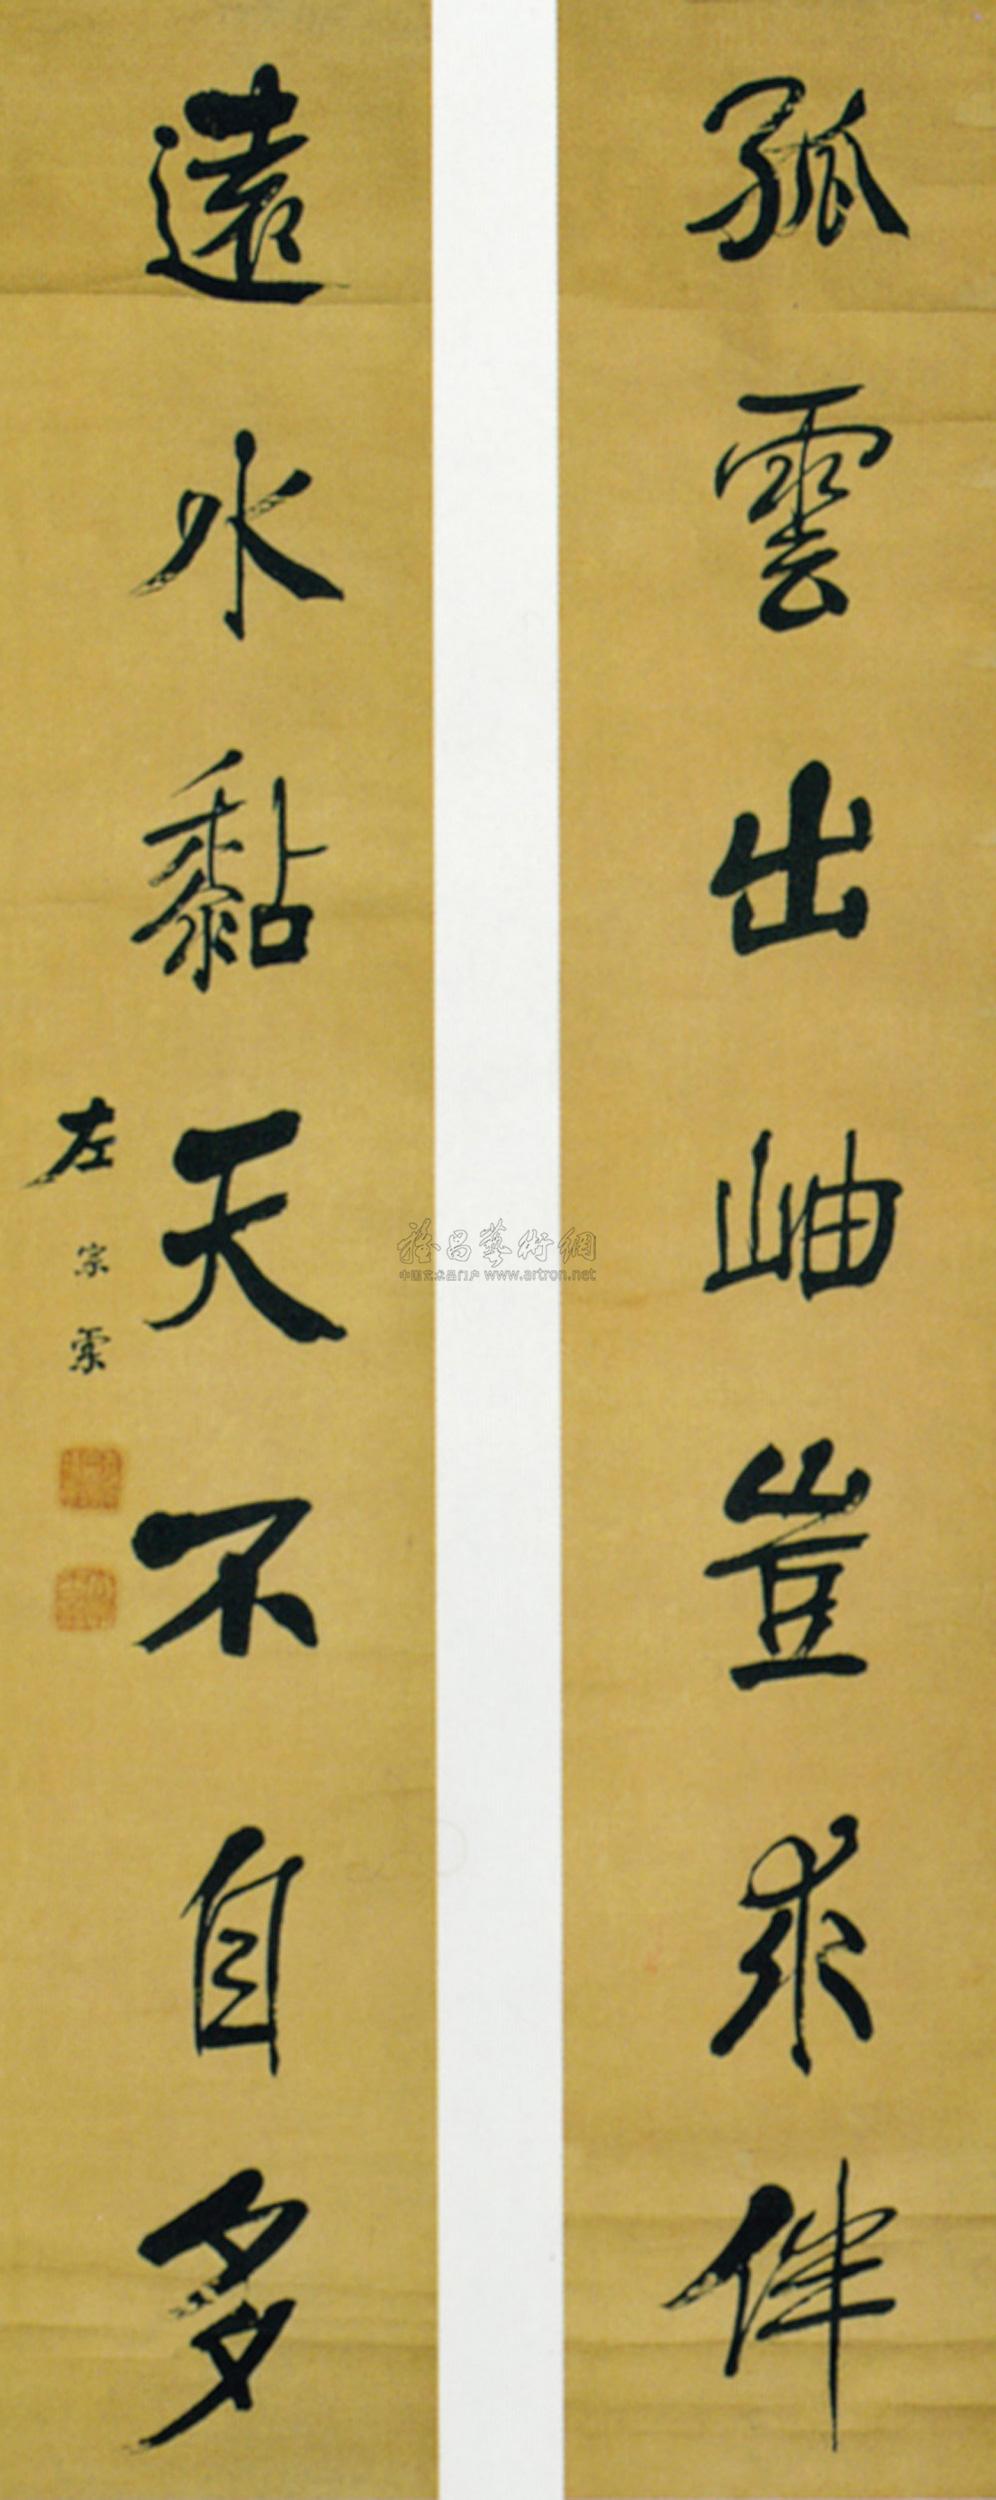 孤雲出岫豈求伴
遠水黏天不自多
左宗棠
雅昌藝術網
中国艺术品门户 www.artron.net